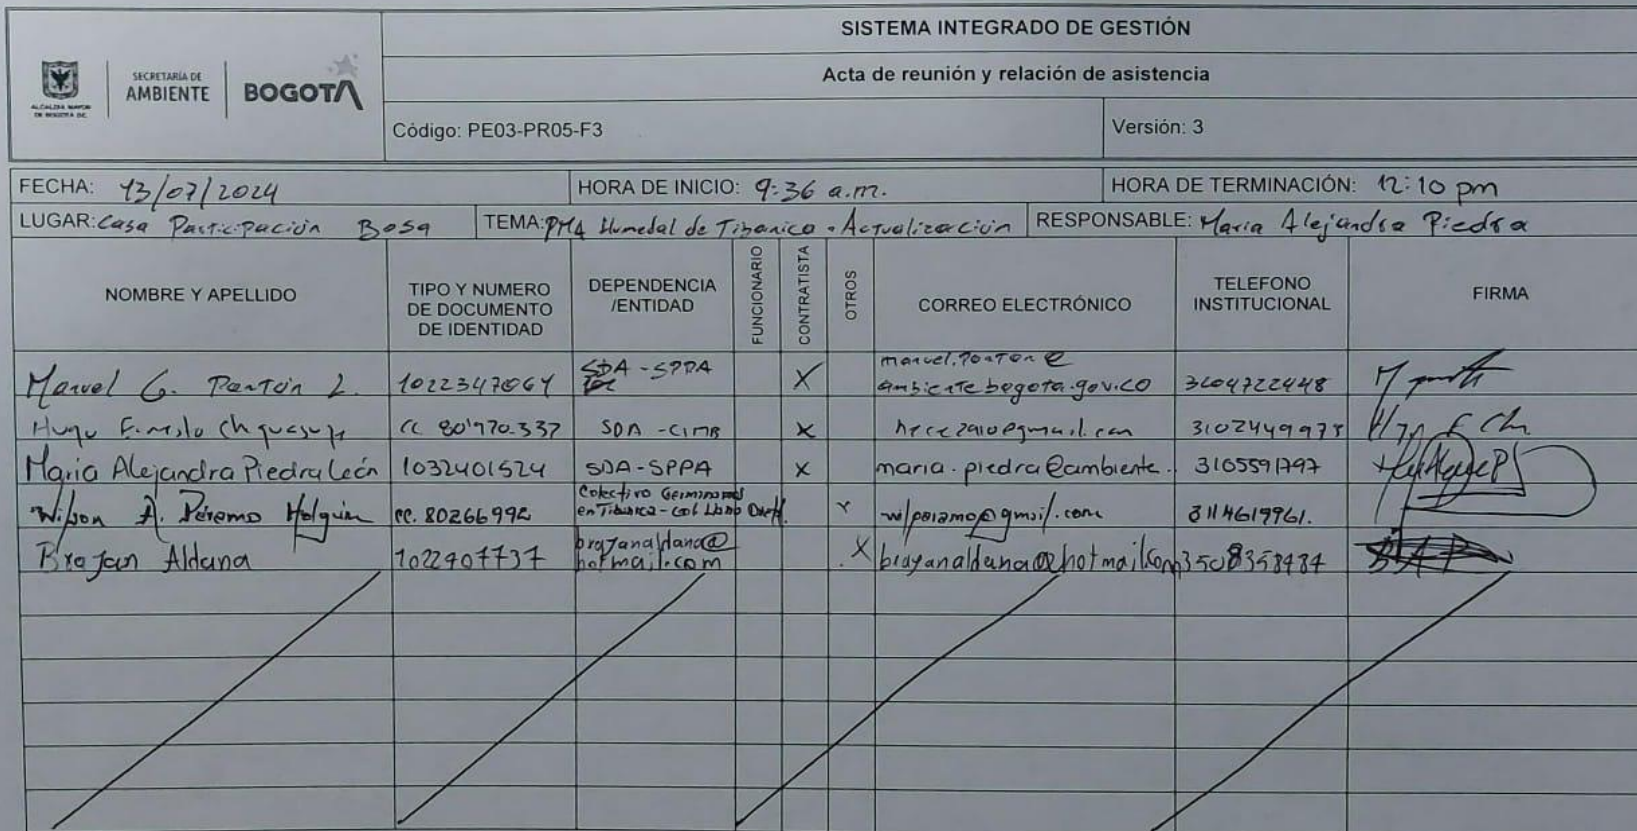 SISTEMA INTEGRADO DE GESTIÓN
ALCALDÍA MAYOR
DE BOGOTÁ D.C.
SECRETARÍA DE
AMBIENTE
BOGOTÁ
Acta de reunión y relación de asistencia
Código: PE03-PR05-F3
Versión: 3
FECHA: 13/07/2024
HORA DE INICIO: 9:36 a.m.
HORA DE TERMINACIÓN: 12:10 pm
LUGAR: Casa Participación Bosa
TEMA: PMA Humedal de Tibanica - Actualización
RESPONSABLE: Maria Alejandra Piedra
NOMBRE Y APELLIDO
TIPO Y NUMERO
DE DOCUMENTO
DE IDENTIDAD
DEPENDENCIA
/ENTIDAD
FUNCIONARIO
CONTRATISTA
OTROS
CORREO ELECTRÓNICO
TELEFONO
INSTITUCIONAL
FIRMA
Manuel G. L.
1022347064
SDA - SPPA
X
ambientebogota.gov.co
3204722448
Hugo
CC 80'970.337
SDA -
X
3102449975
Maria Alejandra Piedra León
1032401524
SDA-SPPA
X
maria.piedra@ambiente.
3105591797
Wilson A. Páramo Holguin
cc. 80266992
Colectivo
en Tibanica -
x
wilparamo@gmail.com
3114619961.
Brayan Aldana
1022407737
brayanaldana@
hotmail.com
X
brayanaldana@hotmail.com
3508358484